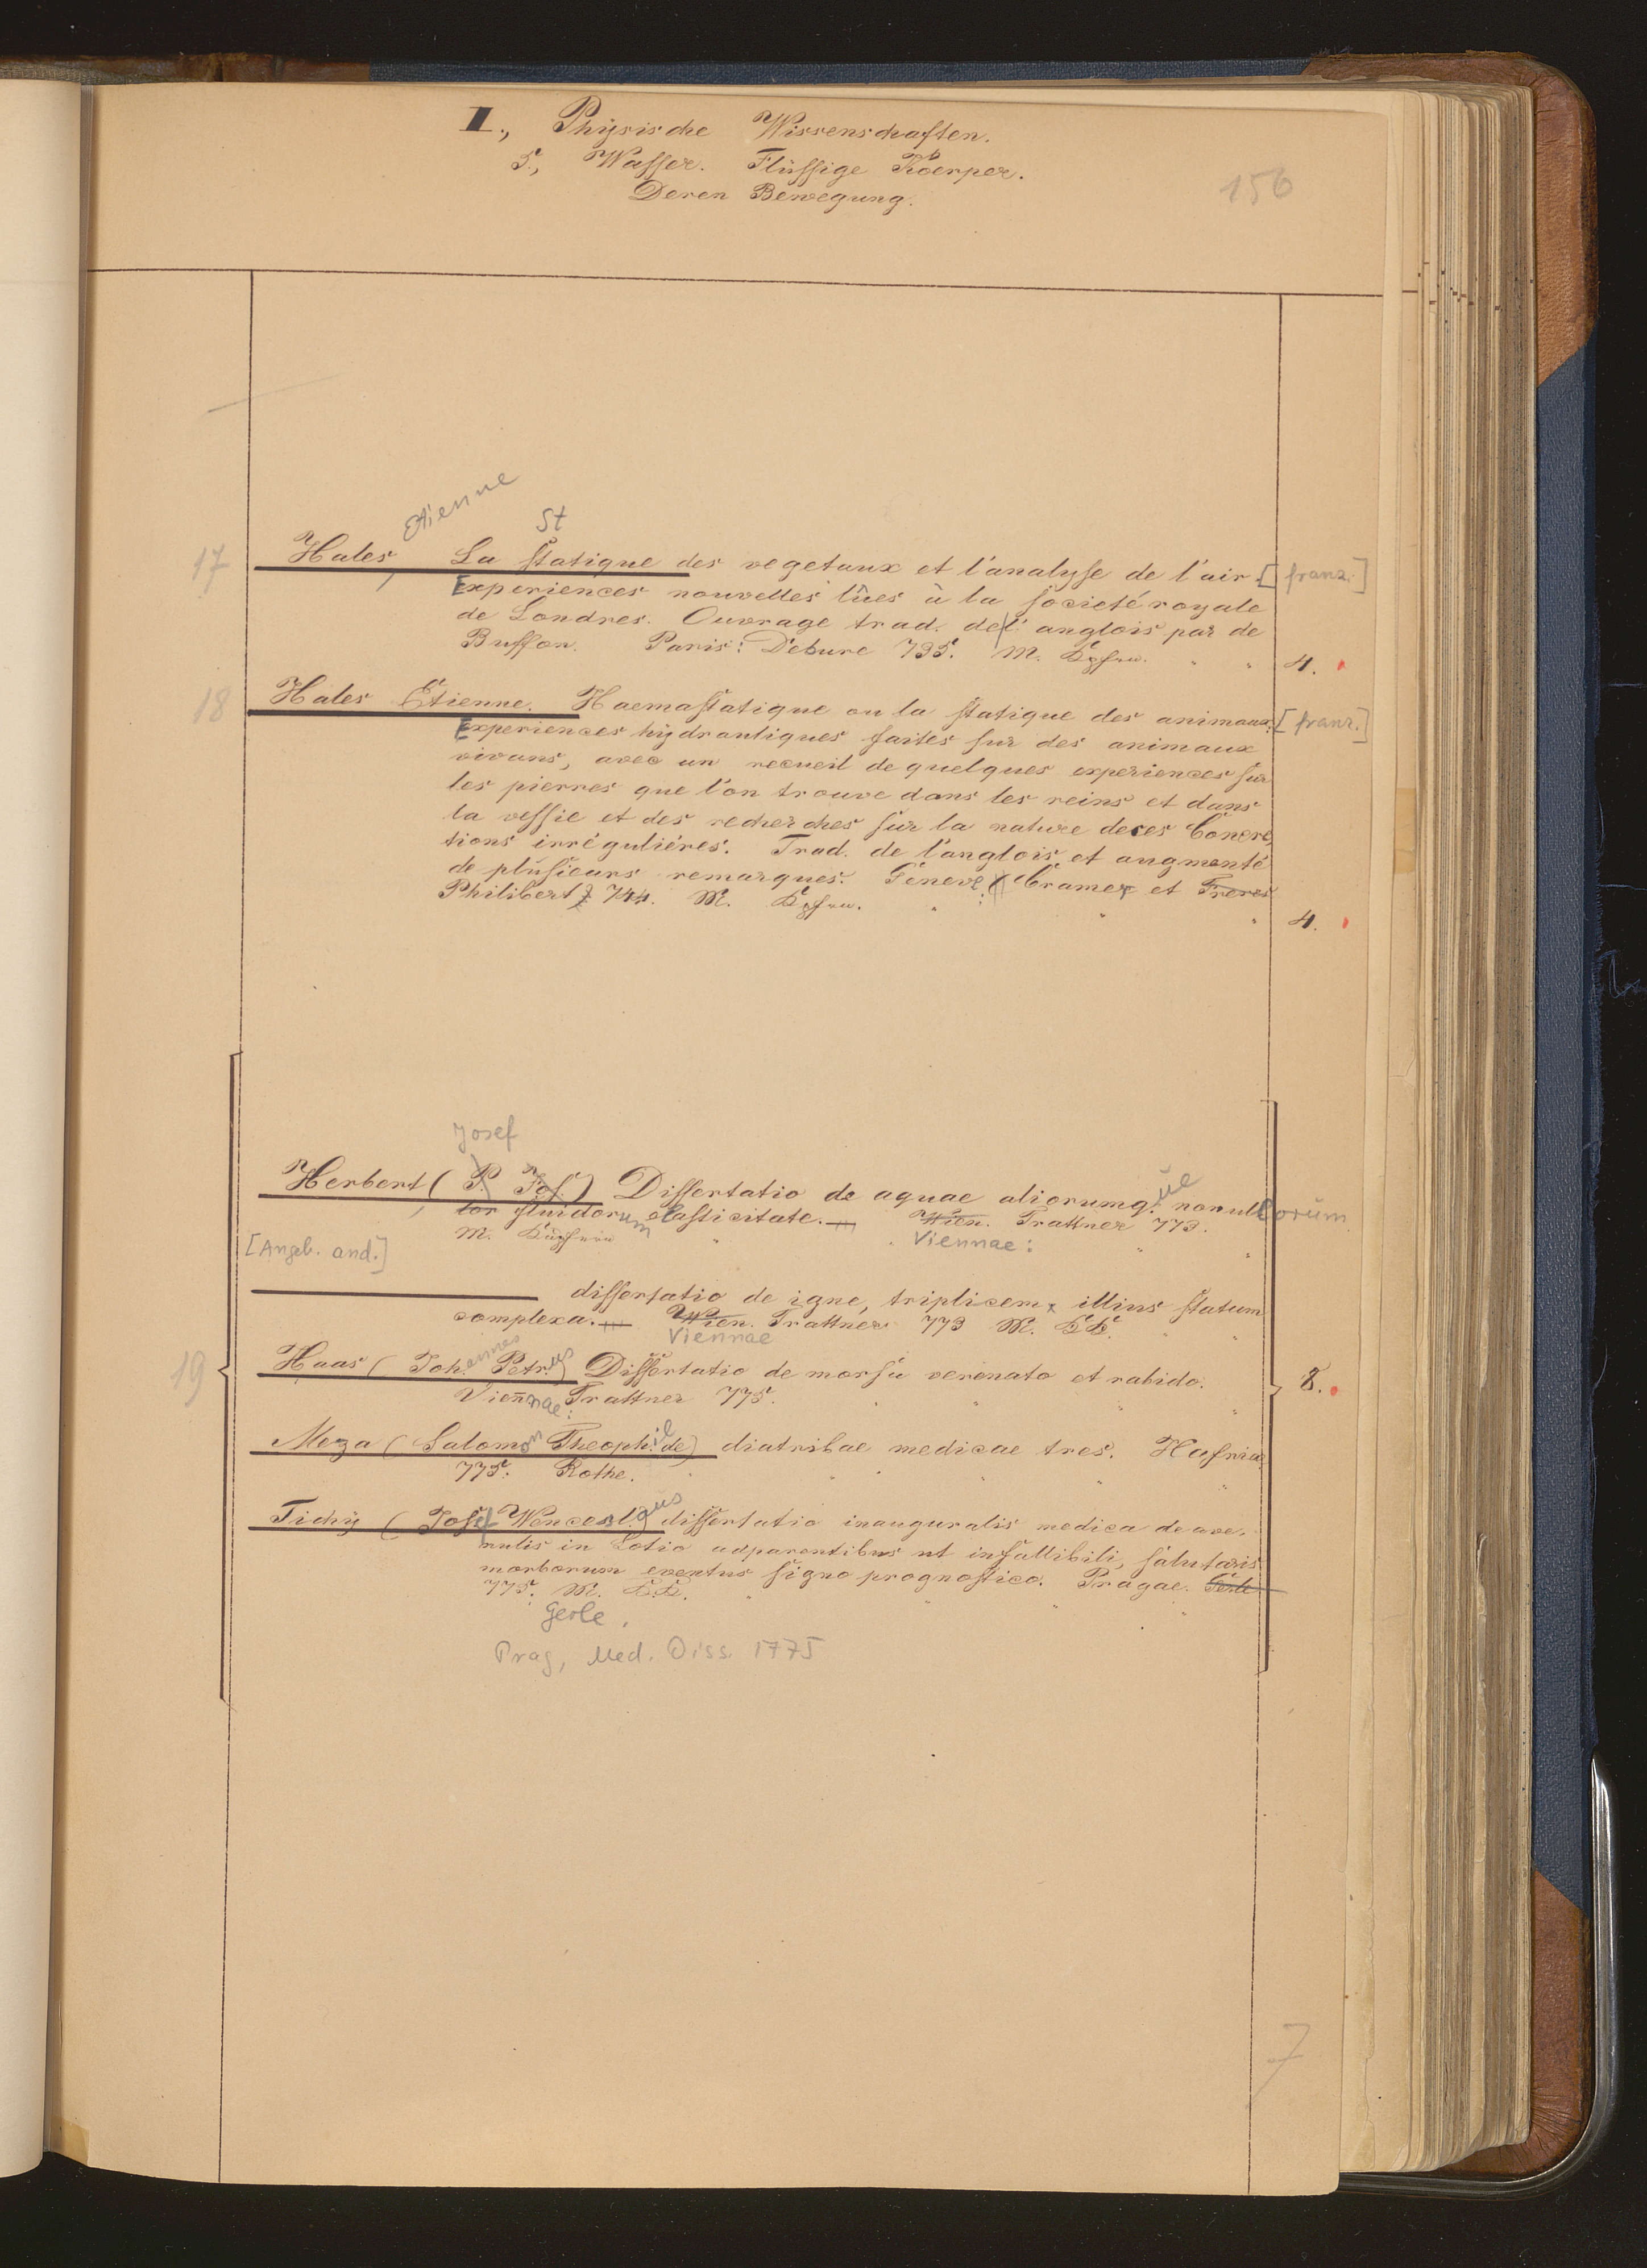 II., Physische Wissenschaften.
5., Wasser. Flüssige Koerper.
Deren Bewegung.
156
Etienne
St
17 Hales, La statique des vegetaux et l'analyse de l'air. [franz.]
Experiences nouvelles lûes à la societé royale
de Londres. Ouvrage trad. de l' anglois par de
Buffon. Paris: Debure 735. M. Kpfrn. 4.
18 Hales Etienne. Haemastatique ou la statique des animaux: [franz.]
Experiences hydrauliques faites sur des animaux
vivans, avec un recueil de quelques experiences sur
les pierres que l'on trouve dans les reins et dans
la vessie et des recherches sur la nature de ces Concre,
tions irréguliéres. Trad. de l'anglois et augmenté
de plusieurs remarques. Geneve: Cramer et Freres
Philibert 744. M. Kpfrn. 4.
Josef
Herbert, (P. Jos.) Dissertatio de aquae aliorumq.üe nonullorüm
lor fluidorum elasticitate. Wien. Trattner 773.
M. Viennae:
[Angeb. and.]
dissertatio de igne, triplicem, illius statum
complexa. Wien. Trattner 773 M. KK.
Viennae
19 Haas (Johannes Petrus) Dissertatio de morsu venenato et rabido. 8.
Viennae: Trattner 775.
Meza (Salomon Theophil de) diatribae medicae tres. Hafniae
775. Rothe.
Tichy (Josef Wenceslaus) dissertatio inauguralis medica de are,
nulis in Lotio adparentibus ut infallibili, salutaris
morborum eventus signo prognostico. Pragae. Gerle
775. M. KK.
Gerle,
Prag, Med. Diss. 1775
7